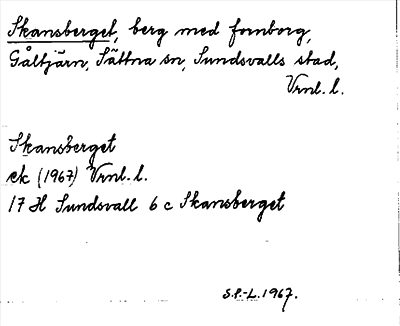 Skansberget, berg med fornborg,
Gåltjärn, Sättna sn, Sundsvalls stad,
Vrnl. l.
Skansberget
ek (1967) Vrnl. l.
17 H Sundsvall 6 c Skansberget
S.P.-L. 1967.